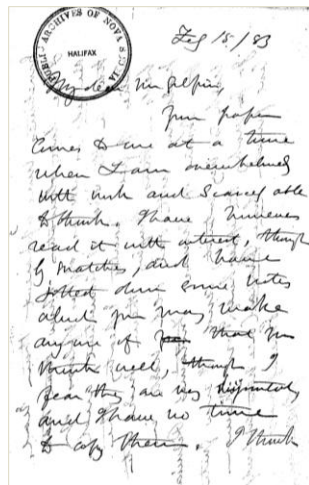 PUBLIC ARCHIVES OF NOVA SCOTIA
HALIFAX
Feb 15/83
My dear Mr Gilpin,
Your paper
comes to me at a time
when I am overwhelmed
with work and scarcely able
to think. I have however
read it with interest, though
by snatches, and have
jotted down some notes
which you may make
any use of that you
think well, though I
fear they are very
and I have no time
to copy them. I think